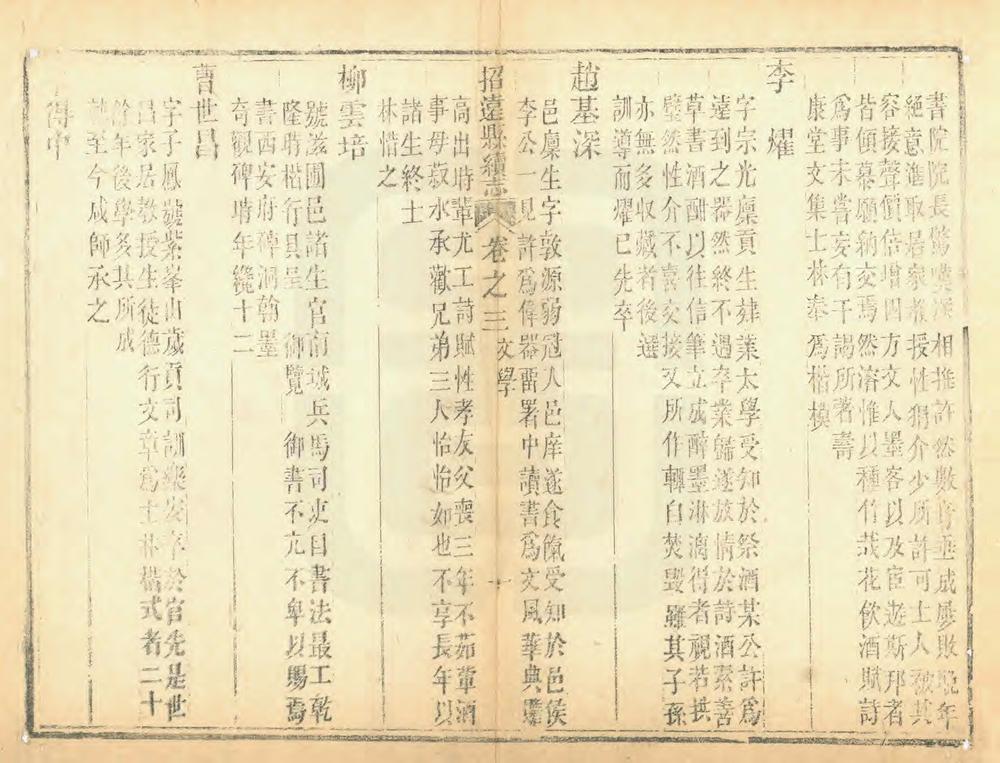 書院院長驚嘆深相推許然數奇垂成屢敗晚年
絕意進取居家教授性狷介少所許可士人被其
容接聲價倍增四方文人墨客以及宦遊斯邦者
皆傾慕願納交焉然溶惟以種竹栽花飲酒賦詩
為事未嘗妄有干謁所著壽
康堂文集士林奉為楷模
李燿
字宗光廩貢生肄業太學受知於祭酒某公許為
遠到之器然終不遇卒業歸遂放情於詩酒素善
草書酒酣以往信筆立成醉墨淋漓得者視若拱
璧然性介不喜交接又所作輒自焚毀雖其子孫
亦無多收藏者後選
訓導而燿已先卒
趙基深
邑廩生字敦源弱冠入邑庠遂食餼受知於邑侯
李公一見許為偉器留署中讀書為文風華典贍
招遠縣續志 卷之三 文學 十
高出時輩尤工詩賦性孝友父喪三年不茹葷酒
事母菽水承歡兄弟三人怡怡如也不享長年以
諸生終士
林惜之
柳雲培
號滋圃邑諸生官南城兵馬司吏目書法最工乾
隆時楷行具呈 御覽 御書不亢不卑以賜焉
書西安府碑洞翰墨
奇觀碑時年纔十二
曹世昌
字子鳳號紫峯山歲貢司訓樂安卒於官先是世
昌家居教授生徒德行文章為士林楷式者二十
餘年後學多其所成
就至今咸師承之
得中